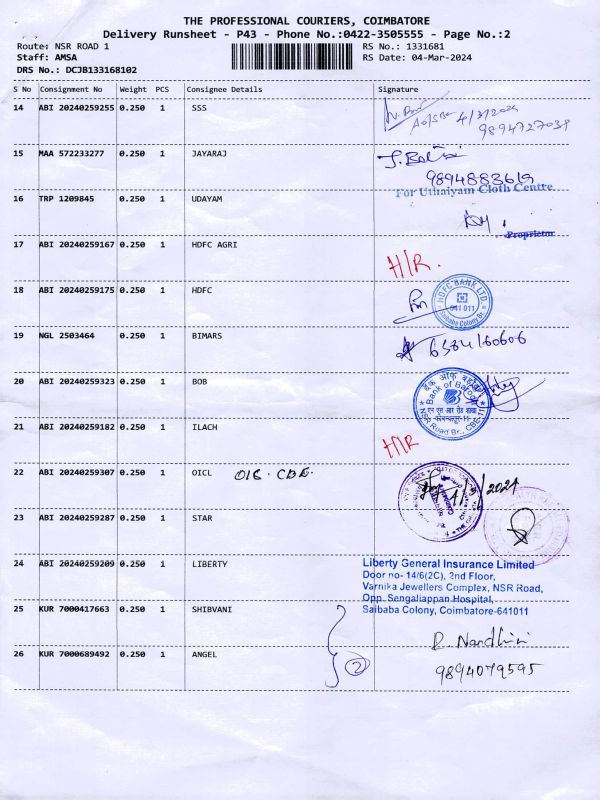 THE PROFESSIONAL COURIERS, COIMBATORE
Delivery Runsheet - P43 - Phone No.:0422-3505555 - Page No.:2
Route: NSR ROAD 1 RS No.: 1331681
Staff: AMSA RS Date: 04-Mar-2024
DRS No.: DCJB133168102
S No Consignment No Weight PCS Consignee Details Signature
14 ABI 20240259255 0.250 1 SSS
4/3/2024
9894727039
15 MAA 572233277 0.250 1 JAYARAJ
9894883619
For Uthaiyam Cloth Centre
16 TRP 1209845 0.250 1 UDAYAM
Proprietor
17 ABI 20240259167 0.250 1 HDFC AGRI
H/R.
18 ABI 20240259175 0.250 1 HDFC
HDFC BANK LTD.
641 011
Saibaba Colony Br.
19 NGL 2503464 0.250 1 BIMARS
6384160606
20 ABI 20240259323 0.250 1 BOB
बैंक ऑफ़ बड़ौदा
Bank of Baroda
NSR Road Br., CBE-11
21 ABI 20240259182 0.250 1 ILACH
H/R
22 ABI 20240259307 0.250 1 OICL OIC. CBE.
4/3/2024
23 ABI 20240259287 0.250 1 STAR
24 ABI 20240259209 0.250 1 LIBERTY
Liberty General Insurance Limited
Door no- 14/6(2C), 2nd Floor,
Varnika Jewellers Complex, NSR Road,
Opp. Sengaliappan Hospital,
Saibaba Colony, Coimbatore-641011
25 KUR 7000417663 0.250 1 SHIBVANI
R. Nandhini
26 KUR 7000689492 0.250 1 ANGEL
2
9894079595